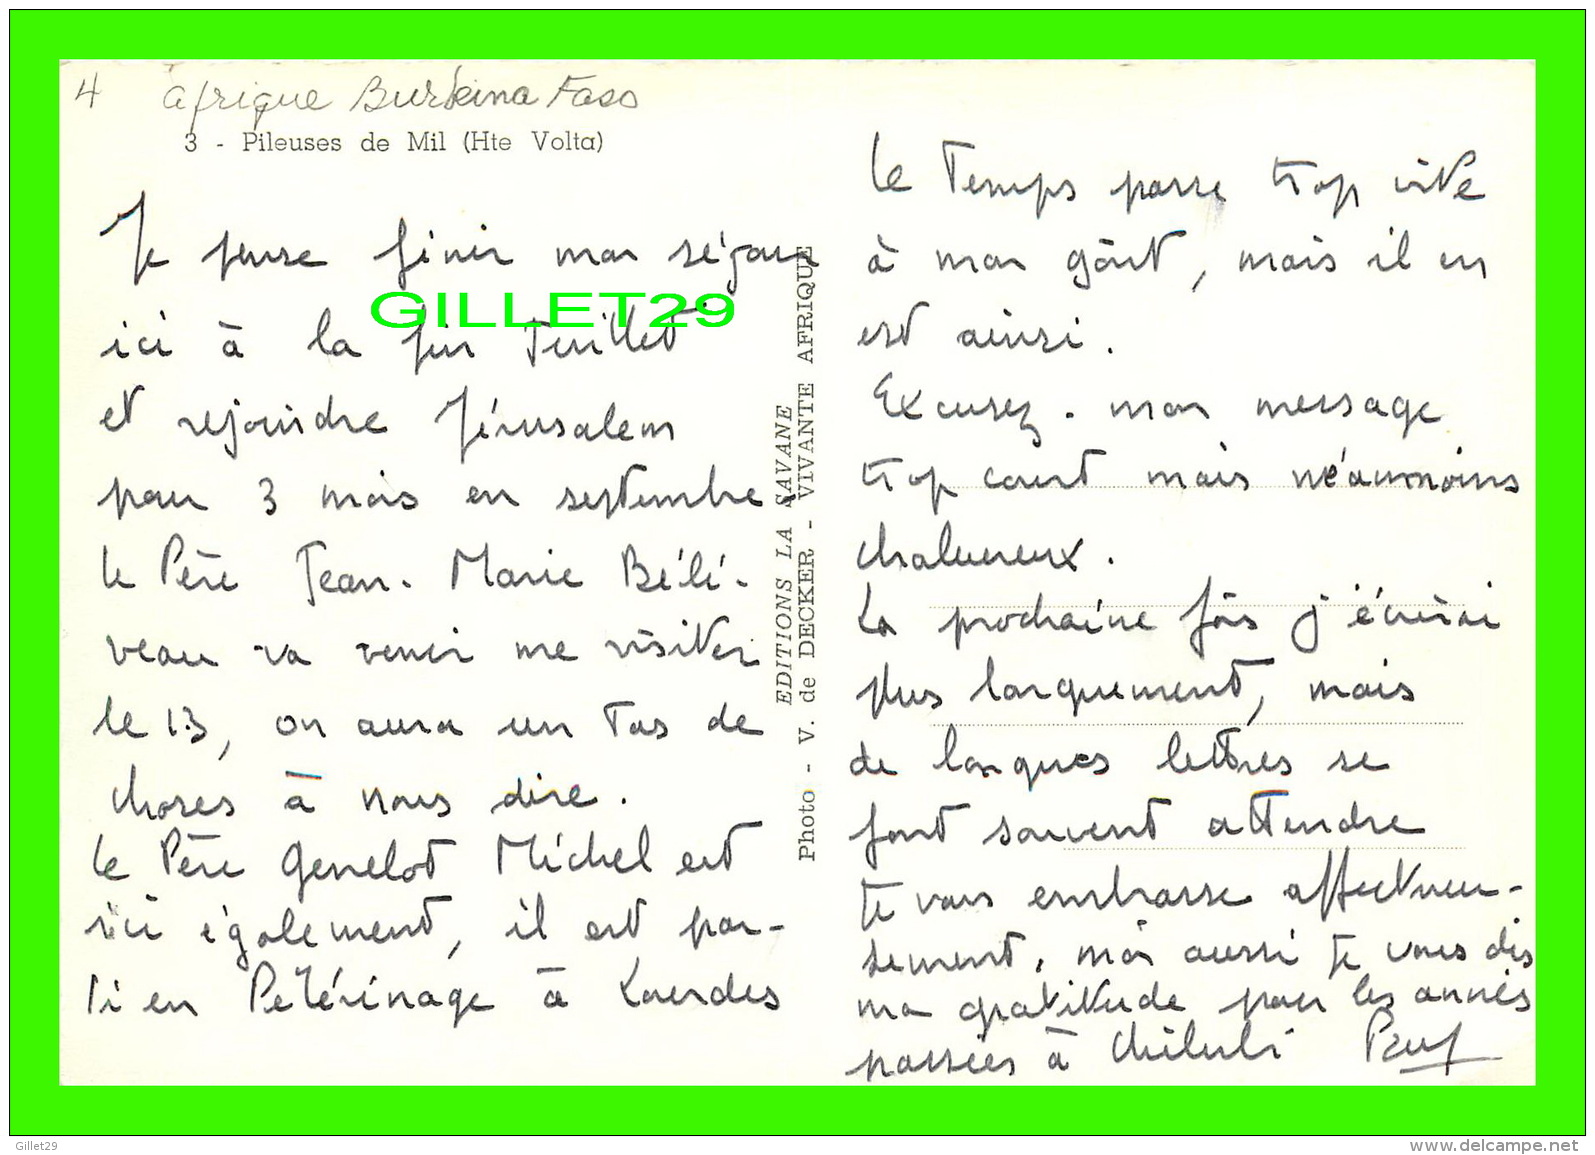 4 Afrique Burkina Faso
3 - Pileuses de Mil (Hte Volta)
Je pense finir mon séjour
ici à la fin Juillet
et rejoindre Jérusalem
pour 3 mois en septembre.
le Père Jean-Marie Béli-
veau va venir me visiter
le 13, on aura un tas de
choses à nous dire.
Le Père Genelot Michel est
ici également, il est par-
ti en Pelérinage à Lourdes
GILLET29
EDITIONS LA SAVANE
Photo - V. de DECKER - VIVANTE AFRIQUE
Le Temps passe trop vite
à mon goût, mais il en
est ainsi.
Excusez. mon message
trop court mais néaumoins
chalureux.
La prochaine fois j'écrirai
plus longuement, mais
de longues lettres se
font souvent attendre
Je vous embrasse affectueu-
sement, moi aussi je vous dis
ma gratitude pour les années
passées à Chilubi
Gillet29
www.delcampe.net